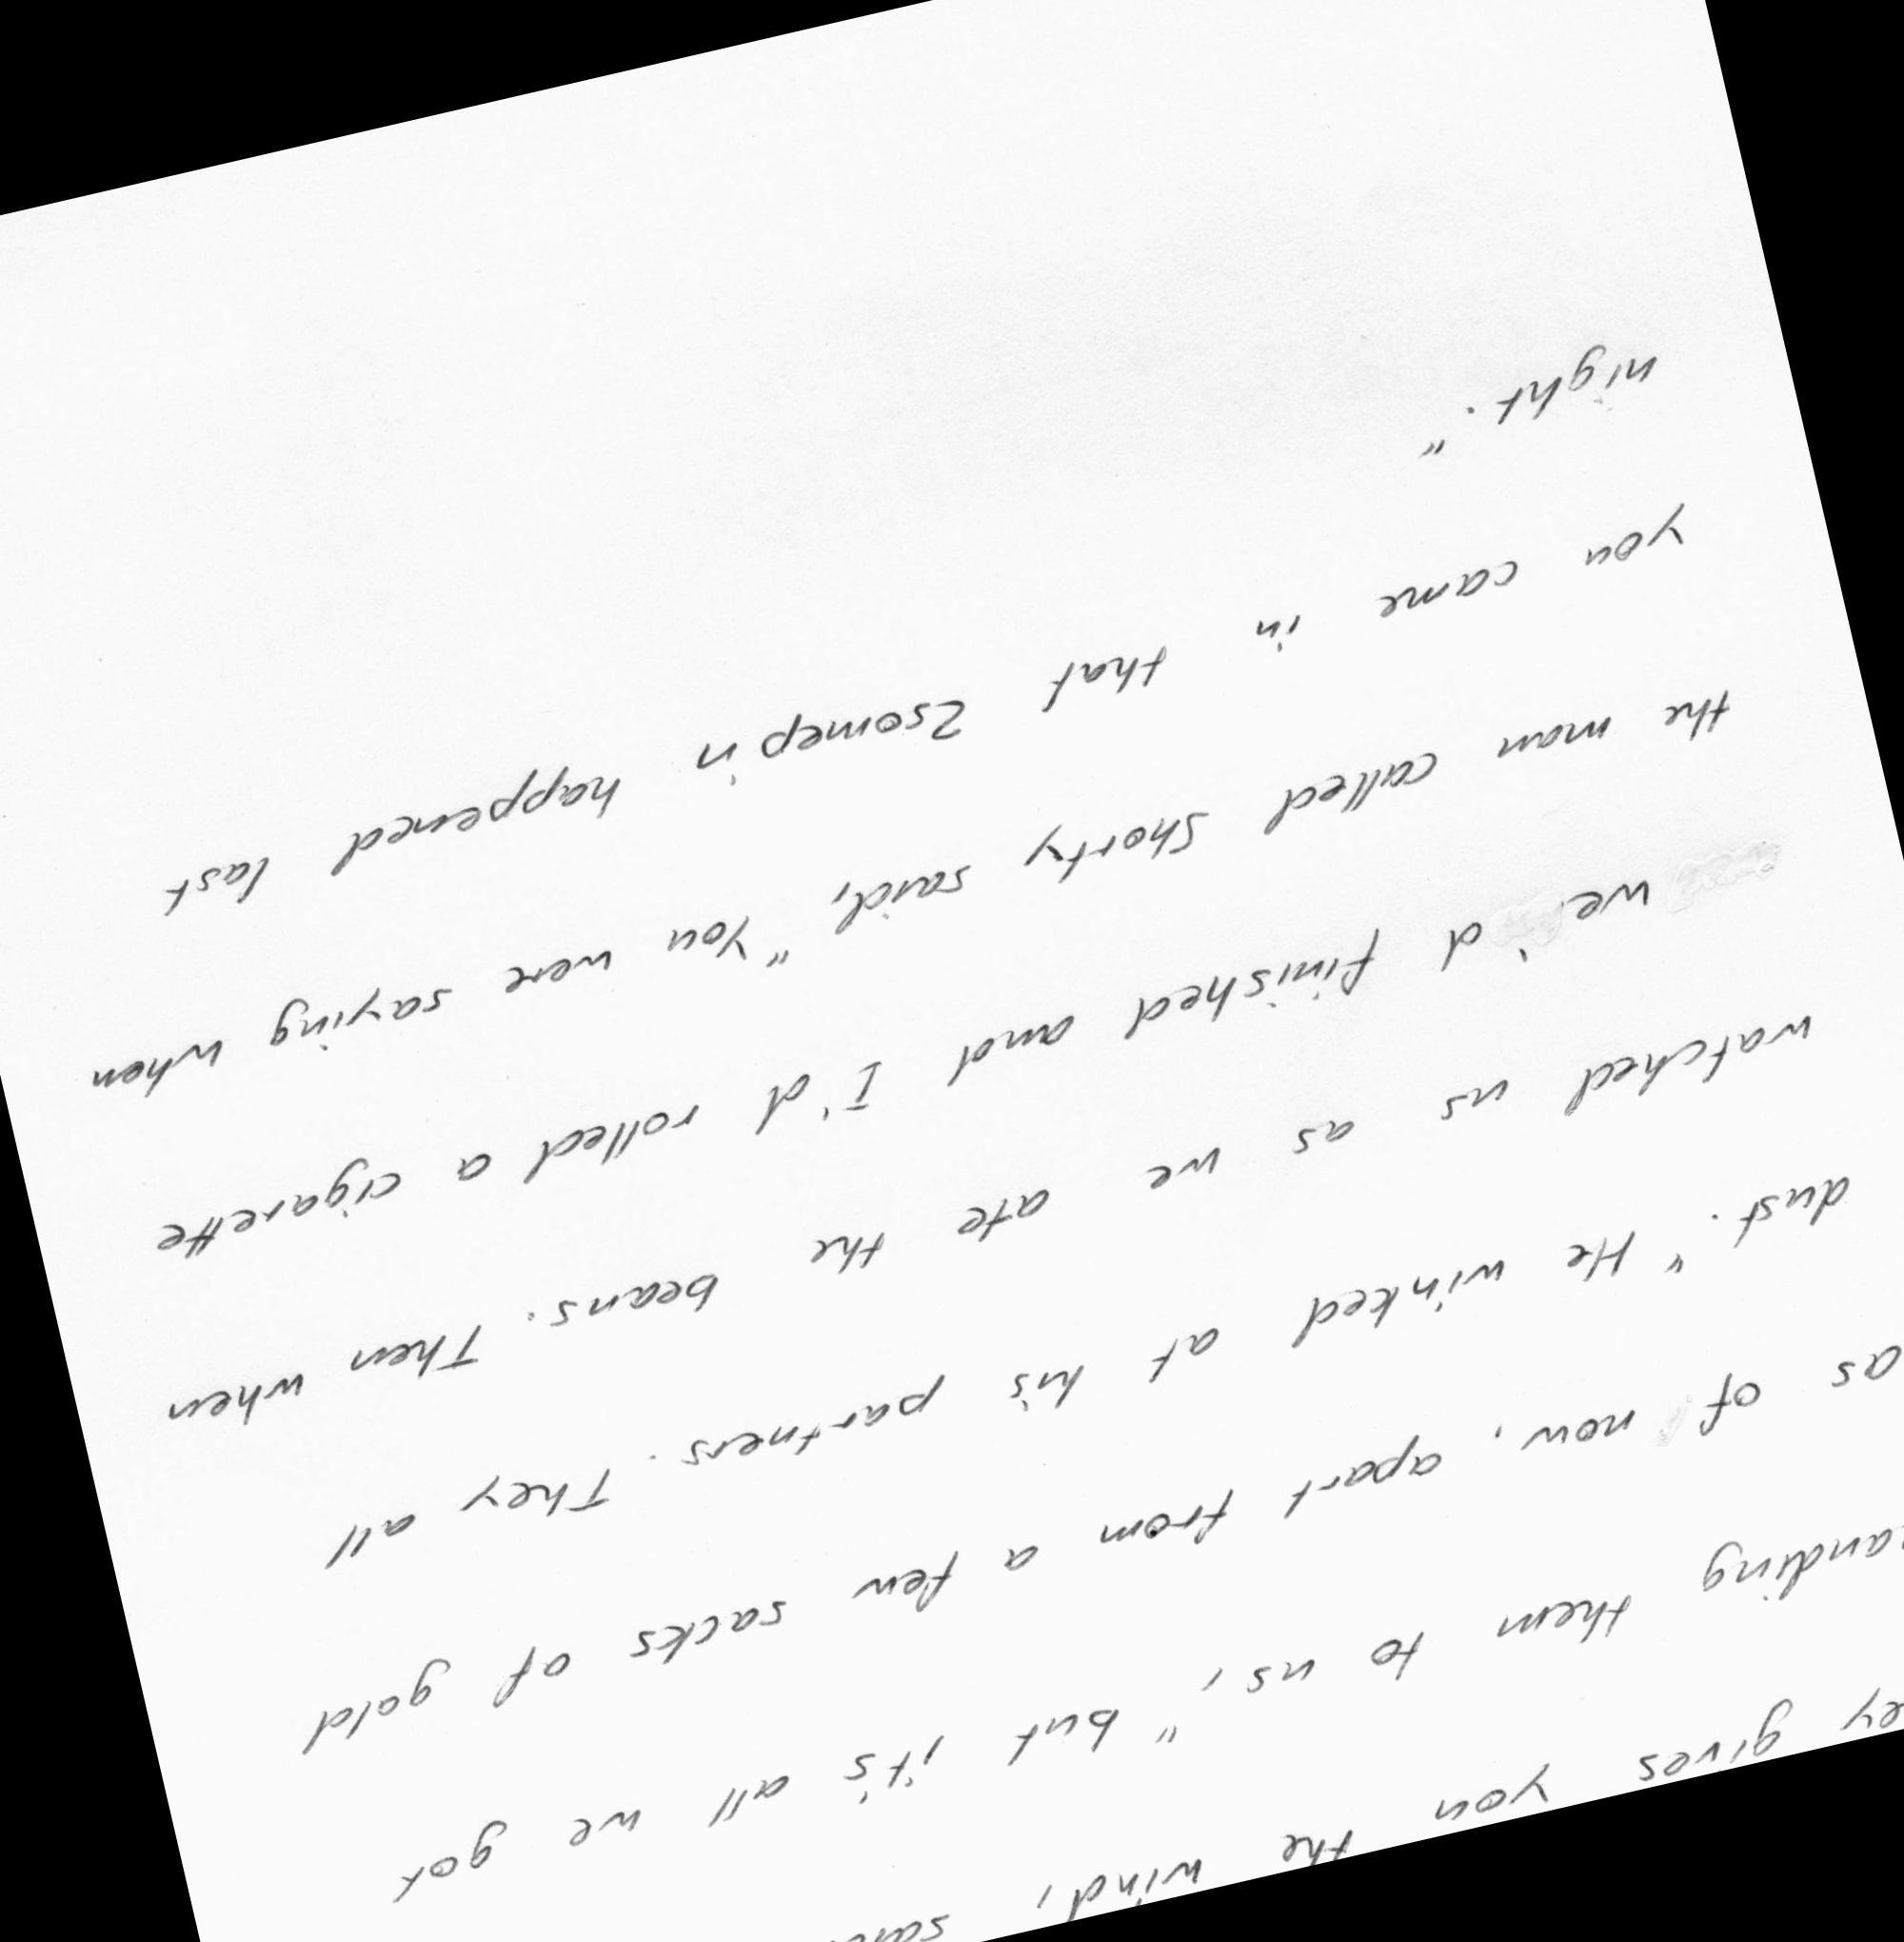 gives you the wind,
anding them to us, "but it's all we got
as of now, apart from a few sacks of gold
dust." He winked at his partners. They all
watched us as we ate the beans. Then when
we'd finished and I'd rolled a cigarette
the man called Shorty said, "You were saying when
you came in that 2somep'n happened last
night."